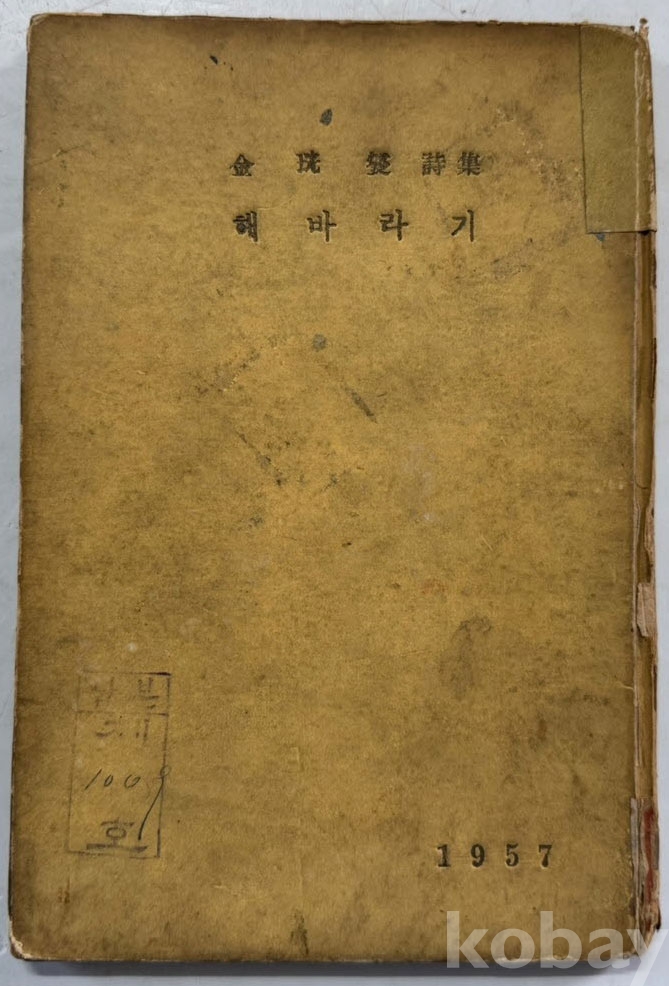 金珖燮詩集
해바라기
제
1009
호
1957
kobay